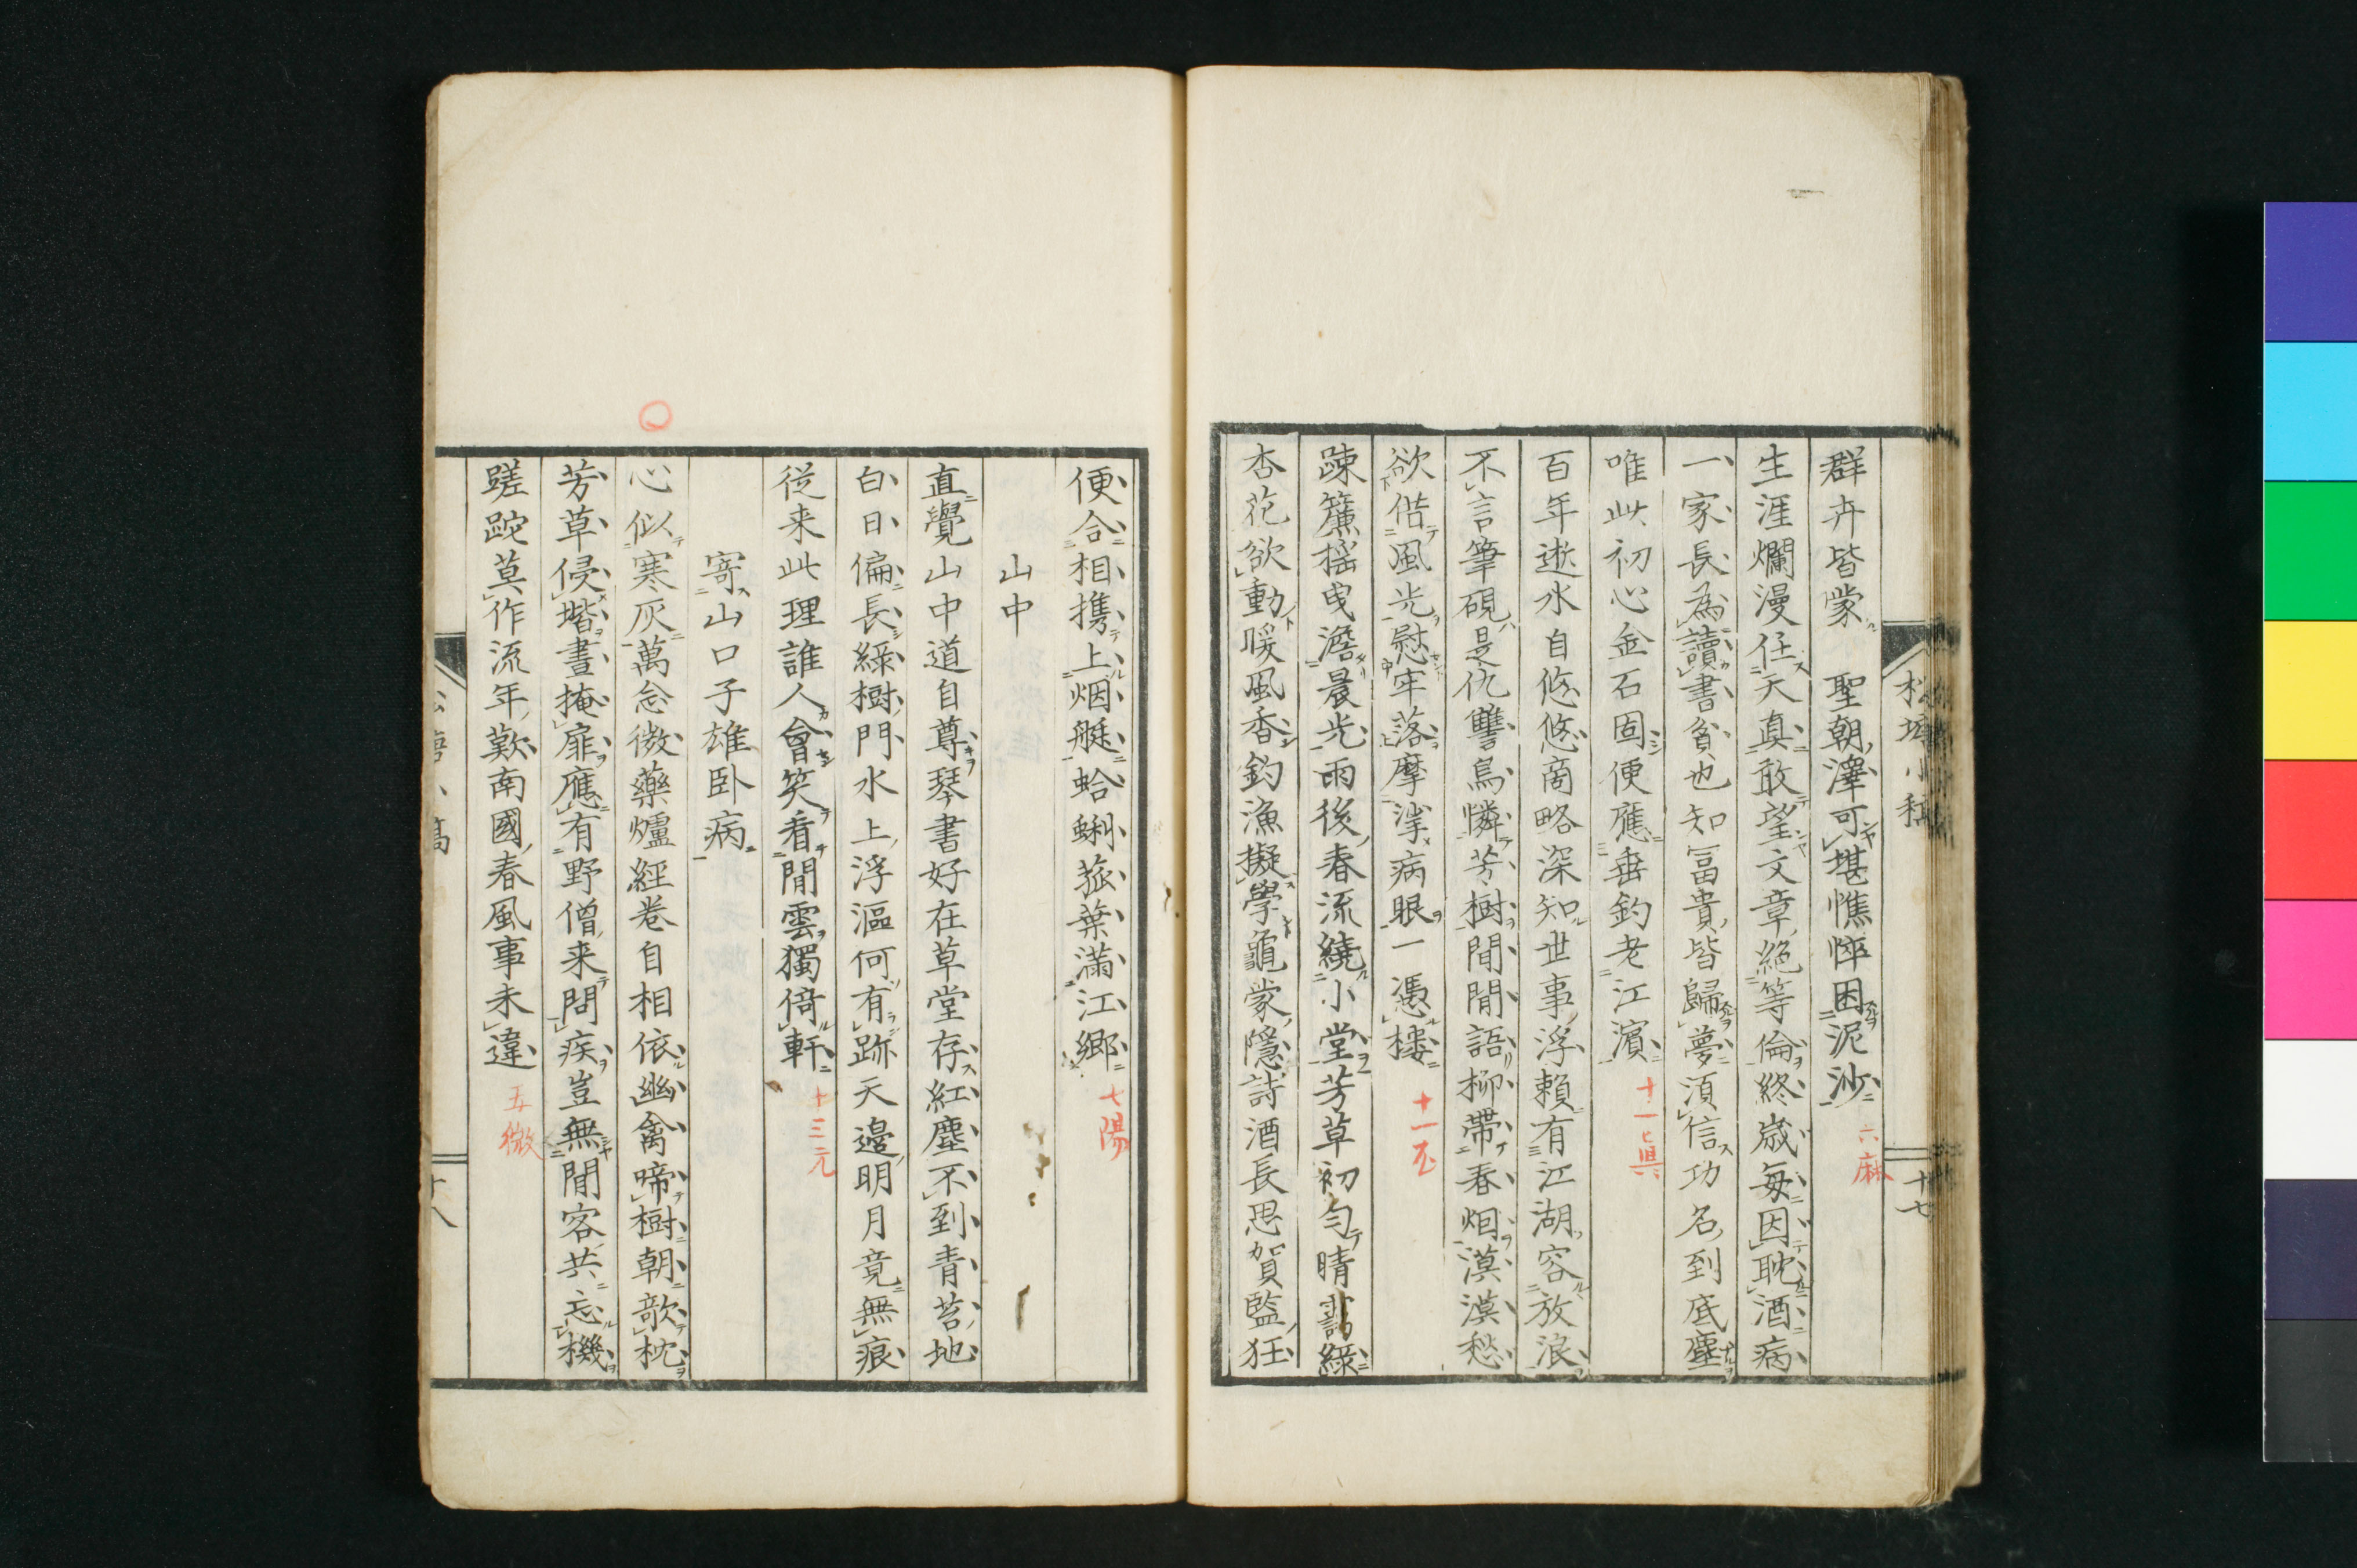 群卉皆蒙　聖朝澤可堪憔悴困泥沙 六麻
生涯爛漫任天真敢望文章絕等倫終歲每因耽酒病
一家長為讀書貧也知冨貴皆歸夢須信功名到底塵
唯此初心金石固便應垂釣老江濱 十一真
百年逝水自悠悠商略深知世事浮賴有江湖容放浪
不言筆硯是仇讐鳥憐芳樹閒閒語柳帶春烟漠漠愁
欲偕風光慰牢落摩挲病眼一憑樓 十一尤
疎簾揺曳澹晨光雨後春流繞小堂芳草初勻晴靄綠
杏花欲動暖風香釣漁擬學龜蒙隱詩酒長思賀監狂
十七
便合相携上烟艇蛤蜊菰葉滿江郷 七陽
山中
直覺山中道自尊琴書好在草堂存紅塵不到青苔地
白日偏長綠樹門水上浮漚何有跡天邊明月竟無痕
従来此理誰人會笑看閒雲獨倚軒 十三元
寄山口子雄卧病
心似寒灰萬念微藥爐經卷自相依幽禽啼樹朝欹枕
芳草侵堦晝掩扉應有野僧来問疾豈無閒客共忘機
蹉跎莫作流年歎南國春風事未違 五微